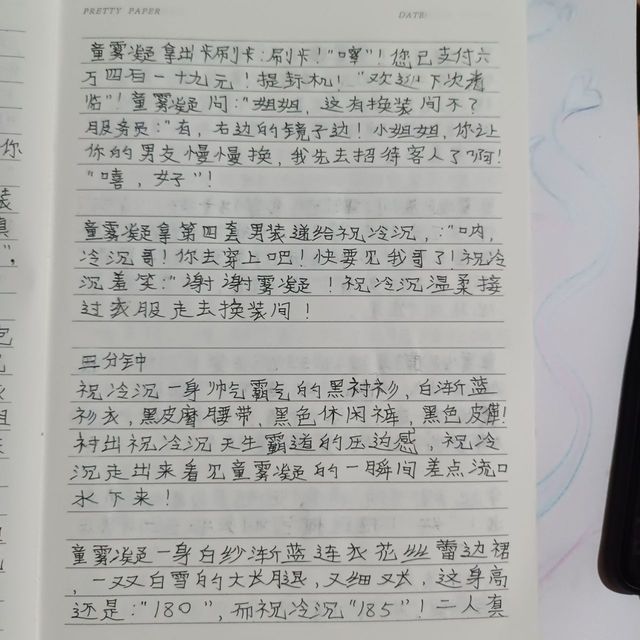 PRETTY PAPER
DATE:
童雾凝拿出卡刷卡:刷卡!"嘀"!您已支付六
万四百一十九元!提示机!"欢迎下次光
临"!童雾凝问:"姐姐,这有换装间不了
服务员:"有,右边的镜子边!小姐姐,你让
你的男友慢慢换,我先去招待客人了啊!
"嘻,好"!
童雾凝拿第四套男装递给祝冷沉,:"呐,
冷沉哥!你去穿上吧!快要见我哥了!祝冷
沉羞笑:"谢谢雾凝!祝冷沉温柔接
过衣服走去换装间!
三分钟
祝冷沉一身帅气霸气的黑衬衫,白渐蓝
衫衣,黑皮磨腰带,黑色休闲裤,黑色皮
衬出祝冷沉天生霸道的压迫感,祝冷
沉走出来看见童雾凝的一瞬间差点流口
水下来!
童雾凝一身白纱渐蓝连衣花丝蕾边裙
,一双白雪的大长腿,又细又长,这身高
还是:"180",而祝冷沉"185"!二人真
你
装
真
"。